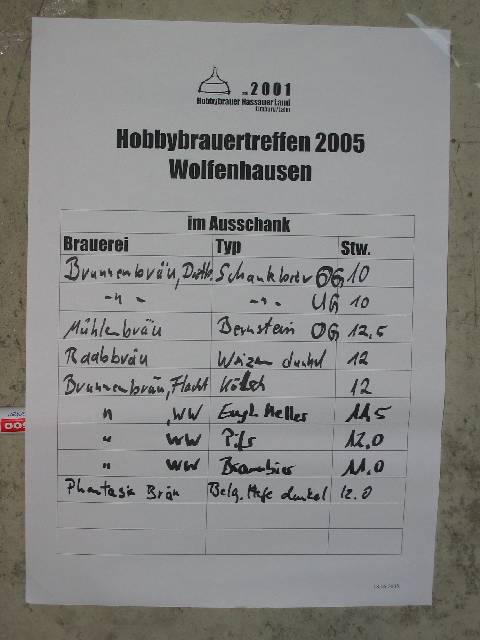 2001
Hobbybrauer Nassauer Land
Limburg/Lahn
Hobbybrauertreffen 2005
Wolfenhausen
im Ausschank
Brauerei Typ Stw.
Brunnenbräu, Schankbier OG 10
-"- -"- UG 10
Mühlenbräu Bernstein OG 12,5
Raabbräu Weizen dunkel 12
Brunnenbräu, Flacht Kölsch 12
" , WW Engl. Heller 11,5
" WW Pils 12.0
" WW Braunbier 11.0
Phantasie Bräu Belg. Hefe dunkel 12.0